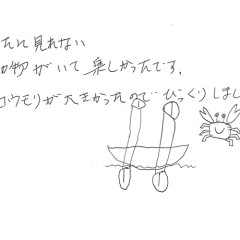 たに見れない
動物がいて楽しかったです。
コウモリが大きかったのでびっくりしまし